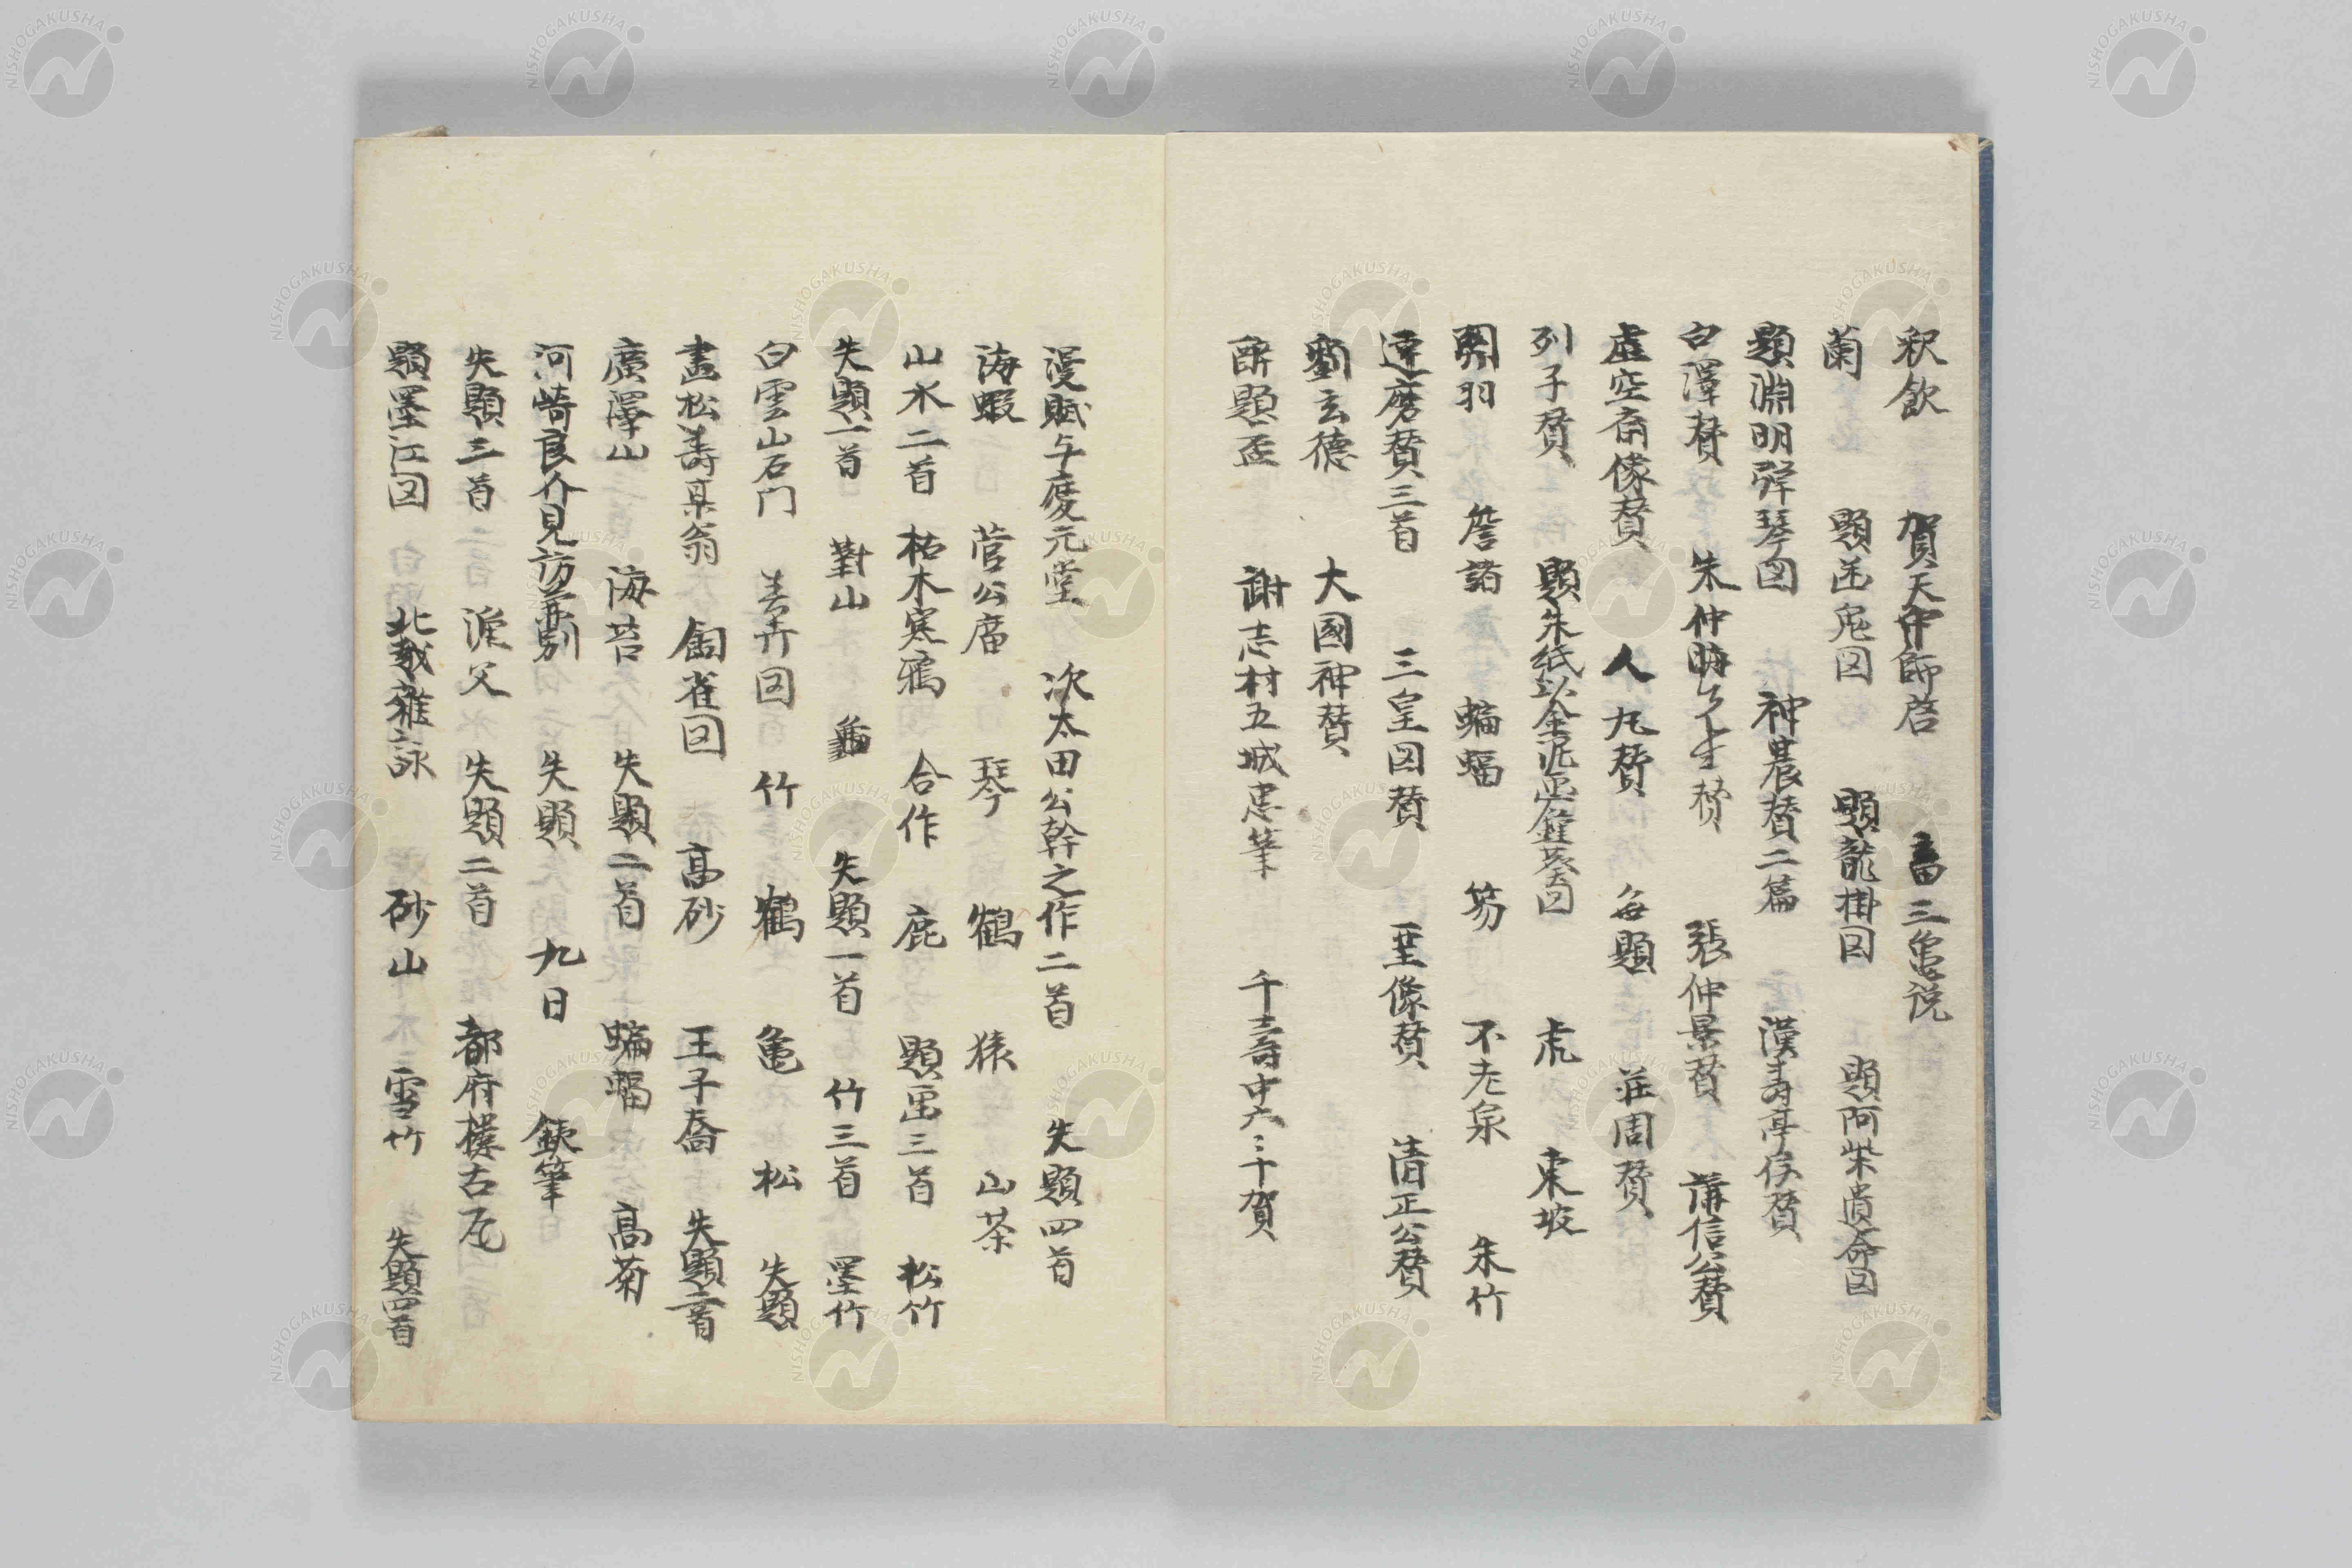 釈飲 賀天中師啓 畜三亀説
蘭 題画兎図 題龍掛図 題阿柴遺命図
題淵明弾琴図 神農賛二篇 漢寿亭侯賛
白澤賛 朱仲晦先生賛 張仲景賛 溝信公賛
虚空斎像賛 人丸賛 毎題 荘周賛
列子賛 題朱紙以金泥画鹿葵図 虎 東坡
関羽 詹詣 蝙蝠 笏 不老泉 朱竹
達磨賛三首 三皇図賛 聖像賛 清正公賛
劉玄徳 大國神賛
酔題盃 謝志村五城恵筆 千壽中六三十賀
漫賦与度元堂 次太田公幹之作二首 失題四首
海蝦 菅公廟 琴 鶴 猿 山茶
山水二首 枯木寒鴉 合作 鹿 題画三首 松竹
失題一首 對山 亀 失題一首 竹三首 墨竹
白雲山石門 善卉図 竹 鶴 亀 松 失題
畫松壽某翁 雀図 高砂 王子喬 失題二首
廣澤山 海苔 失題二首 蝙蝠 高菊
河崎良介見訪兼別 失題 九日 鉄筆
失題三首 漁父 失題二首 都府樓古瓦
題墨江図 北越雑詠 砂山 雪竹 失題四首
NISHOGAKUSHA